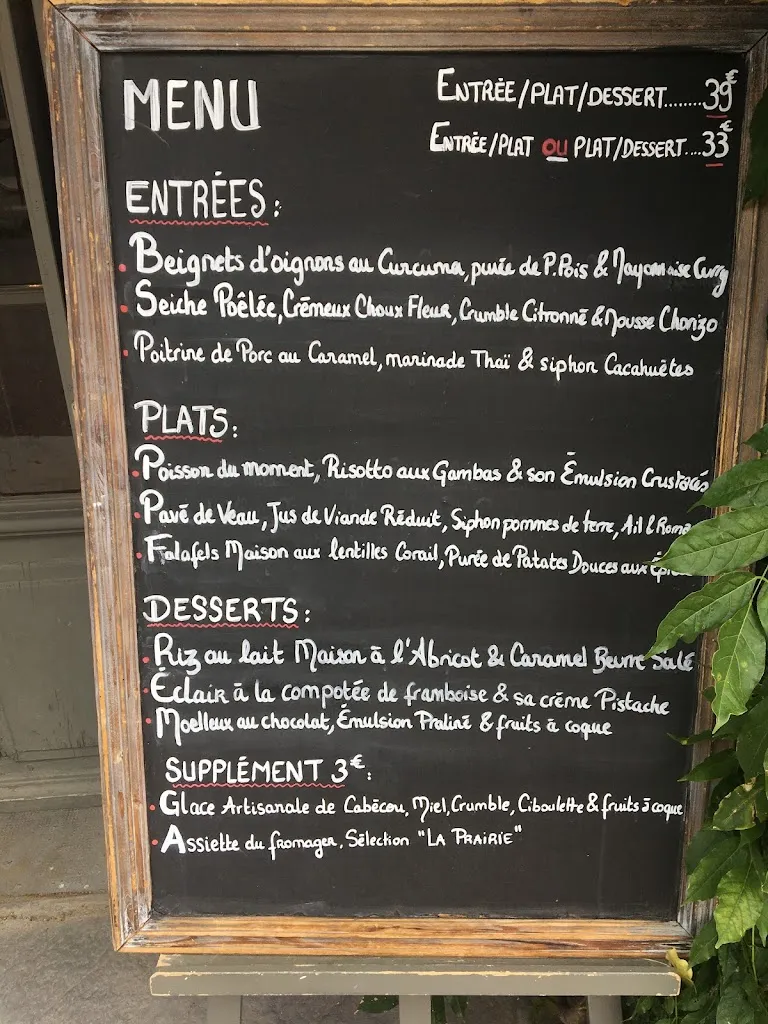 MENU
ENTRÉE/PLAT/DESSERT........39€
ENTRÉE/PLAT OU PLAT/DESSERT....33€
ENTRÉES:
Beignets d'oignons au Curcuma, purée de P.Pois & Mayonnaise Curry
Seiche Poêlée, Crémeux Choux Fleur, Crumble Citronné & Mousse Chorizo
Poitrine de Porc au Caramel, marinade Thaï & siphon Cacahuètes
PLATS:
Poisson du moment, Risotto aux Gambas & son Émulsion Crustacés
Pavé de Veau, Jus de Viande Réduit, Siphon pommes de terre, Ail &
Falafels Maison aux lentilles Corail, Purée de Patates Douces aux
DESSERTS:
Riz au lait Maison à l'Abricot & Caramel Beurre Salé
Éclair à la compotée de framboise & sa crème Pistache
Moelleux au chocolat, Émulsion Praliné & fruits à coque
SUPPLÉMENT 3€:
Glace Artisanale de Cabécou, Miel, Crumble, Ciboulette & fruits à coque
Assiette du fromager, Sélection "LA PRAIRIE"